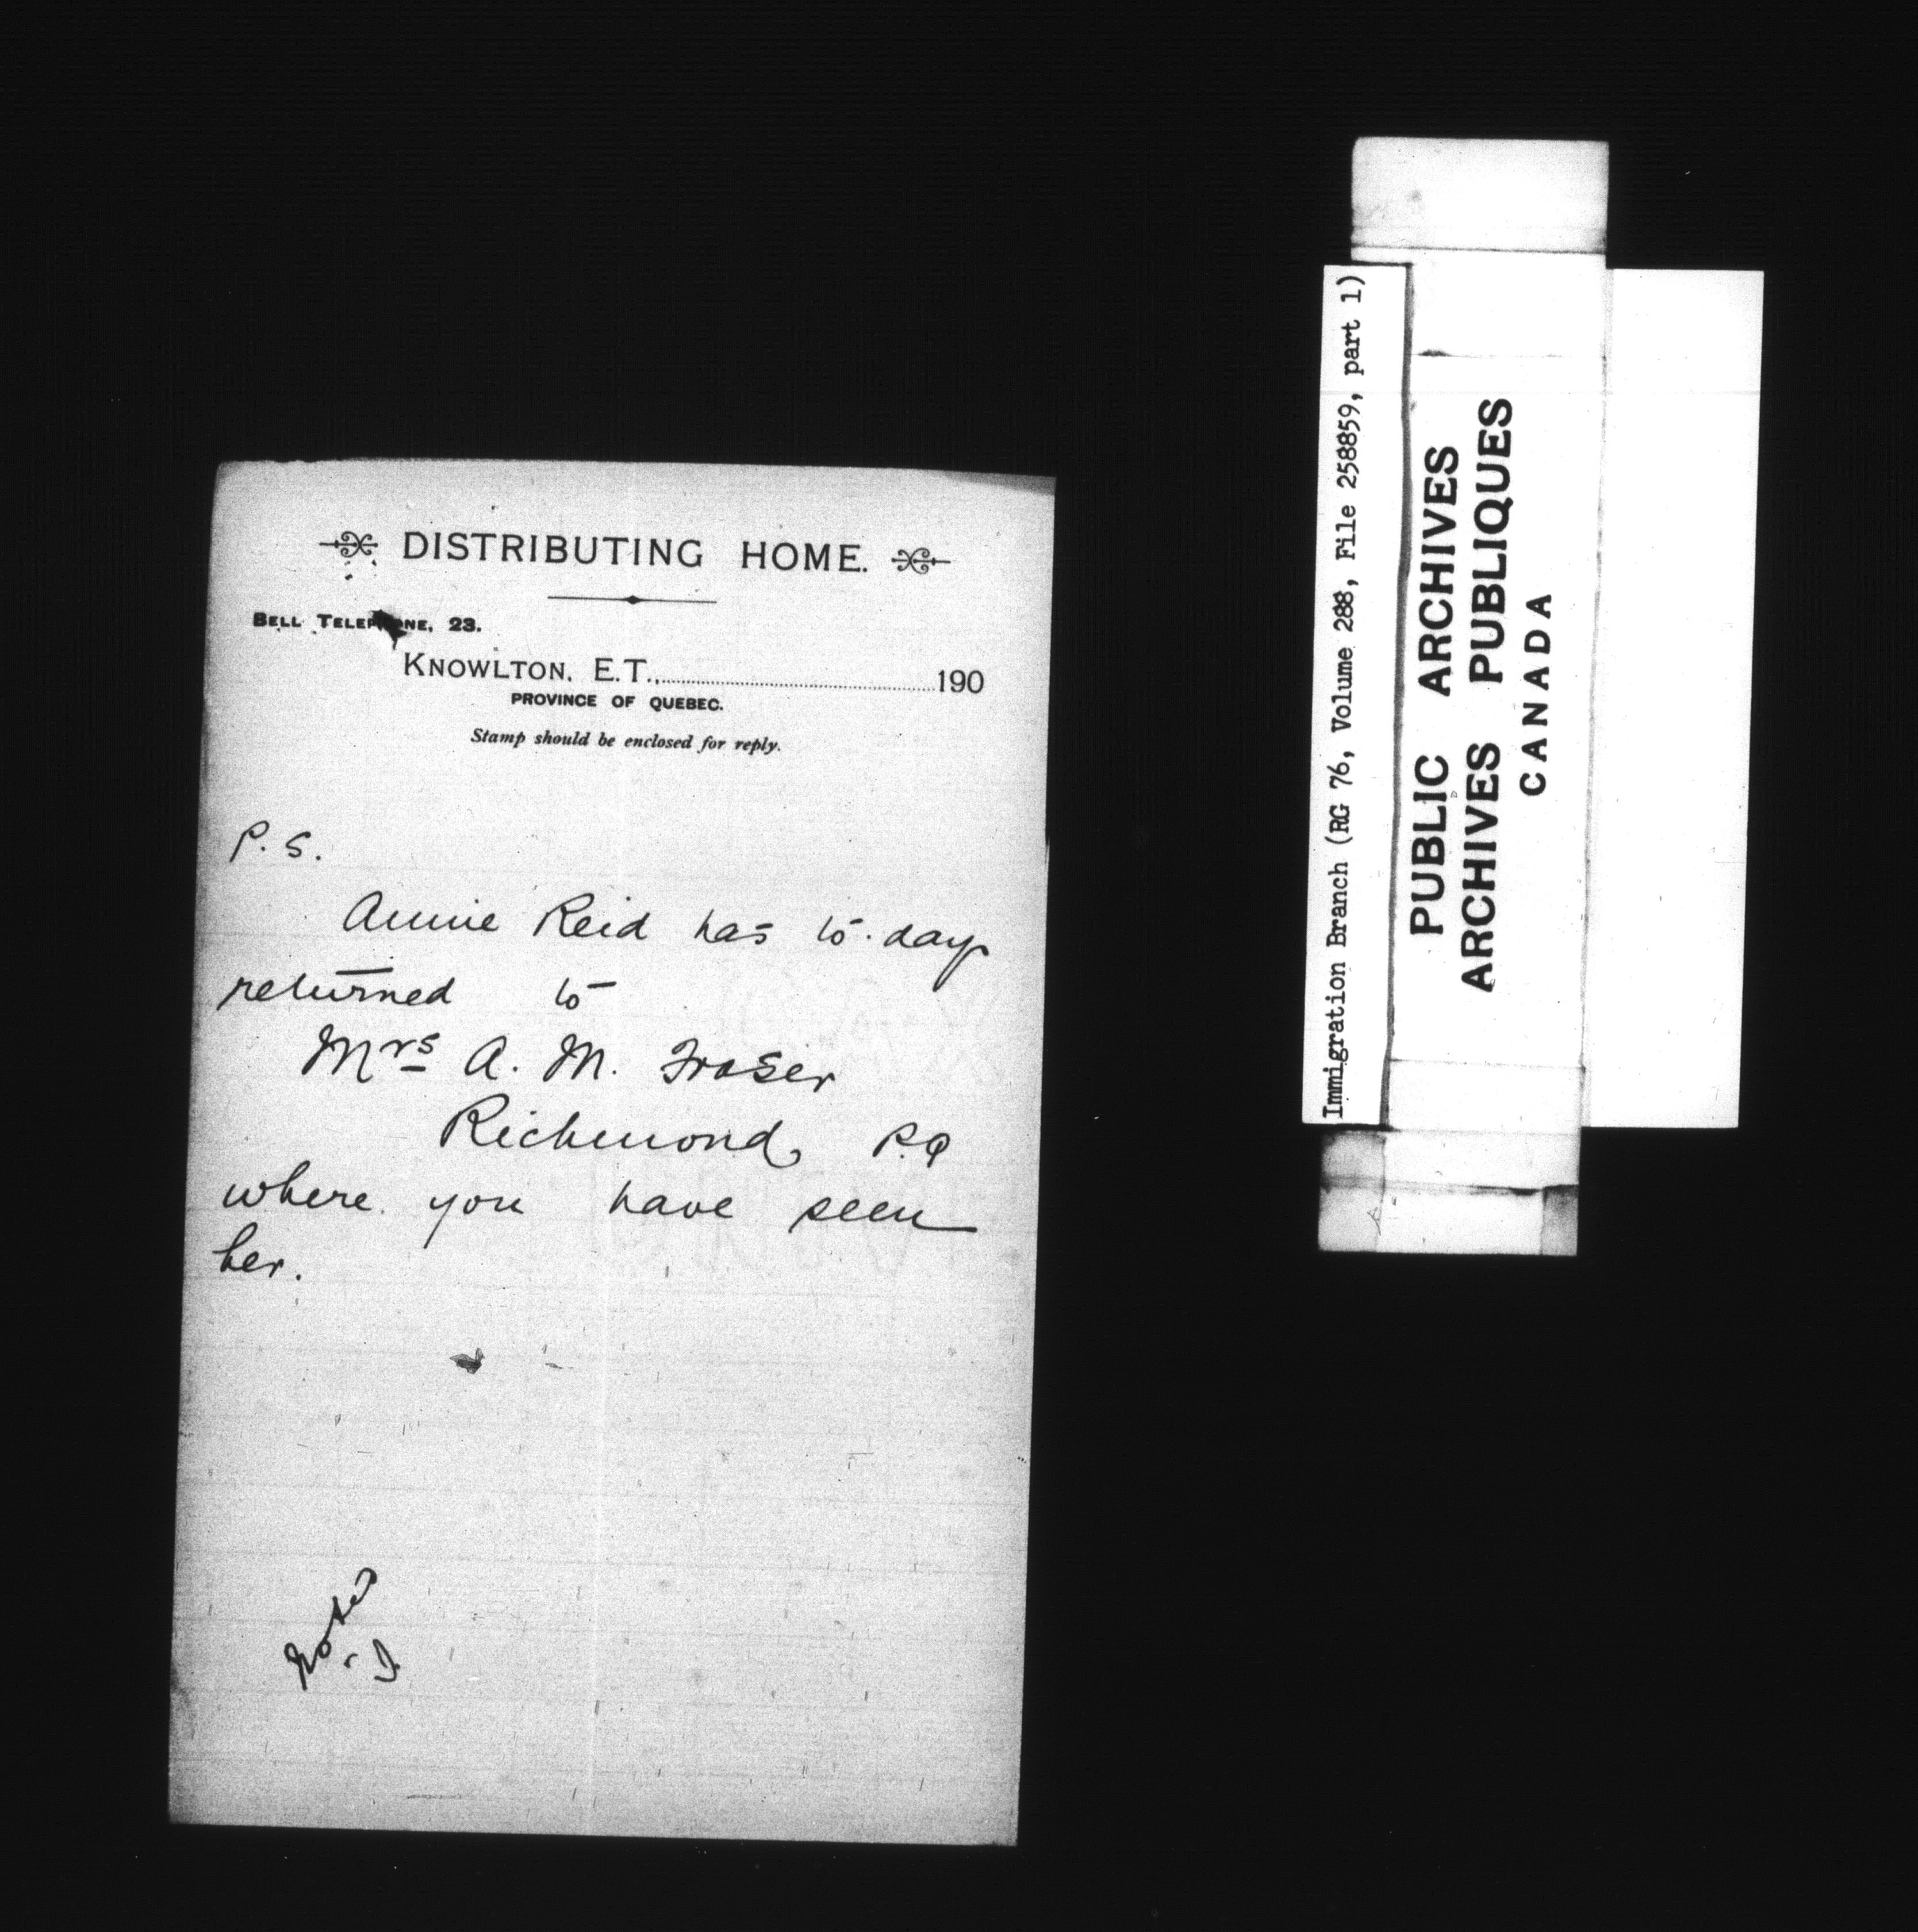 DISTRIBUTING HOME.
BELL TELEPHONE, 23.
KNOWLTON, E.T., 190
PROVINCE OF QUEBEC.
Stamp should be enclosed for reply.
P. S.
Annie Reid has to-day
returned to
Mrs A. M. Fraser
Richmond, P.Q
where you have seen
her.
Immigration Branch (RG 76, Volume 288, File 258859, part 1)
PUBLIC ARCHIVES
ARCHIVES PUBLIQUES
CANADA